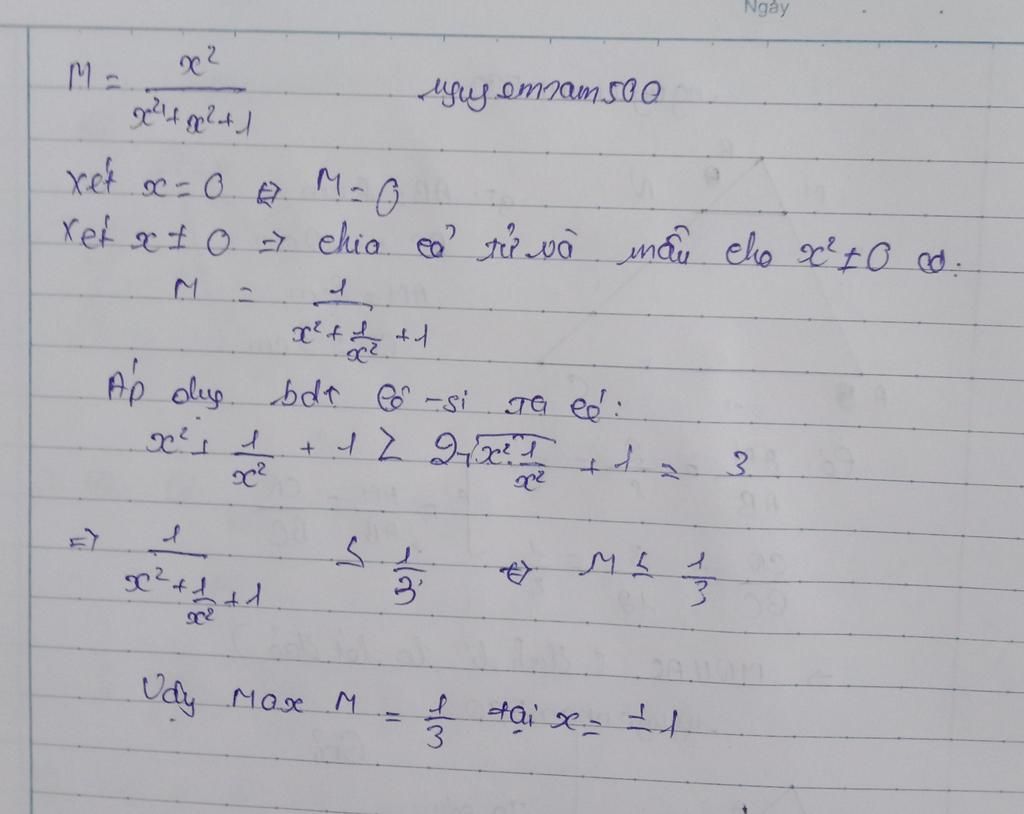 Ngày
M = x²/(x⁴ + x² + 1)
xét x = 0 ⇔ M = 0
xét x ≠ 0 ⇒ chia cả tử và mẫu cho x² ≠ 0 có:
M = 1/(x² + 1/x² + 1)
Áp dụng bđt cô-si ta có:
x² + 1/x² + 1 ≥ 2√(x².1/x²) + 1 = 3
⇒ 1/(x² + 1/x² + 1) ≤ 1/3 ⇔ M ≤ 1/3
Vậy Max M = 1/3 tại x = ±1